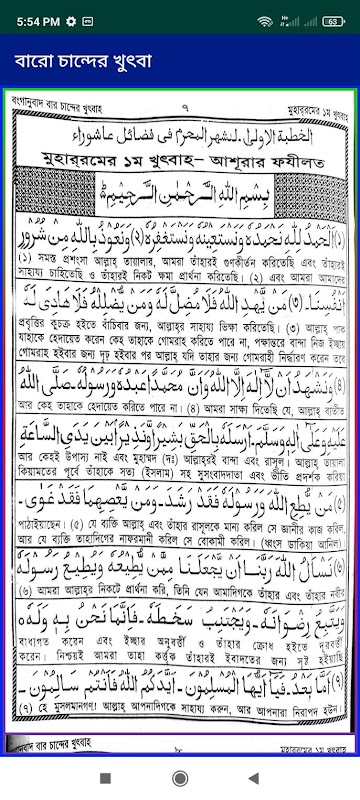 5:54 PM
63
বারো চান্দের খুৎবা
বংগানুবাদ বার চান্দের খুৎবাহ ৭ মুহাররমের ১ম খুৎবাহ
الخطبة الاولى لشهر المحرم فى فضائل عاشوراء
মুহাররমের ১ম খুৎবাহ– আশূরার ফযীলত
بِسْمِ اللهِ الرَّحْمٰنِ الرَّحِيْمِ
(١) اَلْحَمْدُ لِلّٰهِ نَحْمَدُهٗ وَنَسْتَعِيْنُهٗ وَنَسْتَغْفِرُهٗ (٢) وَنَعُوْذُ بِاللهِ مِنْ شُرُوْرِ
(১) সমস্ত প্রশংসা আল্লাহ্ তায়ালার, আমরা তাঁহারই গুণকীর্তন করিতেছি এবং তাঁহারই
সাহায্য চাহিতেছি ও তাঁহারই নিকট ক্ষমা প্রার্থনা করিতেছি। (২) এবং আমরা আমাদের
اَنْفُسِنَا۔ (٣) مَنْ يَّهْدِ اللهُ فَلَا مُضِلَّ لَهٗ وَمَنْ يُّضْلِلْهُ فَلَا هَادِىَ لَهٗ
প্রবৃত্তির কুচক্র হইতে বাঁচিবার জন্য, আল্লাহ্‌র সাহায্য ভিক্ষা করিতেছি। (৩) আল্লাহ্ পাক
যাহাকে হেদায়েত করেন কেহ তাহাকে গোমরাহ করিতে পারে না, পক্ষান্তরে বান্দা নিজ ইচ্ছায়
গোমরাহ হইবার জন্য দৃঢ় হইবার পর আল্লাহ্ যদি তাহার জন্য গোমরাহী নির্দ্ধারণ করেন তবে
(٤) وَنَشْهَدُ اَنْ لَّا اِلٰهَ اِلَّا اللهُ وَاَنَّ مُحَمَّدًا عَبْدُهٗ وَرَسُوْلُهٗ۔ صَلَّى اللهُ
আর কেহ তাহাকে হেদায়েত করিতে পারে না। (৪) আমরা সাক্ষ্য দিতেছি যে, আল্লাহ্ ব্যতীত
عَلَيْهِ وَعَلٰى اٰلِهٖ وَسَلَّمَ۔ اَرْسَلَهٗ بِالْحَقِّ بَشِيْرًا وَّنَذِيْرًا بَيْنَ يَدَىِ السَّاعَةِ
আর কেহই উপাস্য নাই এবং মুহাম্মদ (দঃ) আল্লাহরই বান্দা এবং রাসূল। আল্লাহ্ তায়ালা
কিয়ামতের পূর্বে তাঁহাকে সত্য (ইসলাম) সহ সুসংবাদদাতা এবং ভীতি প্রদর্শক করিয়া
(٥) مَنْ يُّطِعِ اللهَ وَرَسُوْلَهٗ فَقَدْ رَشَدَ۔ وَمَنْ يَّعْصِهِمَا فَقَدْ غَوٰى۔
পাঠাইয়াছেন। (৫) যে ব্যক্তি আল্লাহ্ এবং তাঁহার রাসূলকে মান্য করিল সে জ্ঞানীর কাজ করিল,
আর যে ব্যক্তি তাহাদিগের নাফরমানী করিল সে বোকামী করিল। (ধ্বংস ডাকিয়া আনিল)।
(٦) نَسْأَلُ اللهَ رَبَّنَا اَنْ يَّجْعَلَنَا مِمَّنْ يُّطِيْعُهٗ وَيُطِيْعُ رَسُوْلَهٗ
(৬) আমরা আল্লাহর নিকটে প্রার্থনা করি, তিনি যেন আমাদিগকে তাঁহার এবং তাঁহার নবীর
وَيَتَّبِعُ رِضْوَانَهٗ۔ وَيَجْتَنِبُ سَخَطَهٗ۔ فَاِنَّمَا نَحْنُ بِهٖ وَلَهٗ
বাধ্যগত করেন এবং ইচ্ছার অনুবর্ত্তী ও তাঁহার ক্রোধ হইতে দূরবর্ত্তী
করেন। নিশ্চয়ই আমরা তাহা কর্ত্তৃক তাঁহারই ইবাদতের জন্য সৃষ্ট হইয়াছি
(٧) اَمَّا بَعْدُ۔ فَيَا اَيُّهَا الْمُسْلِمُوْنَ۔ اَيَّدَكُمُ اللهُ فَاَنْتُمْ سَالِمُوْنَ۔
(৭) হে মুসলমানগণ! আল্লাহ্ আপনাদিগকে সাহায্য করুন, আর আপনারা নিরাপদ হউন।
বংগানুবাদ বার চান্দের খুৎবাহ ৮ মুহাররমের ১ম খুৎবাহ